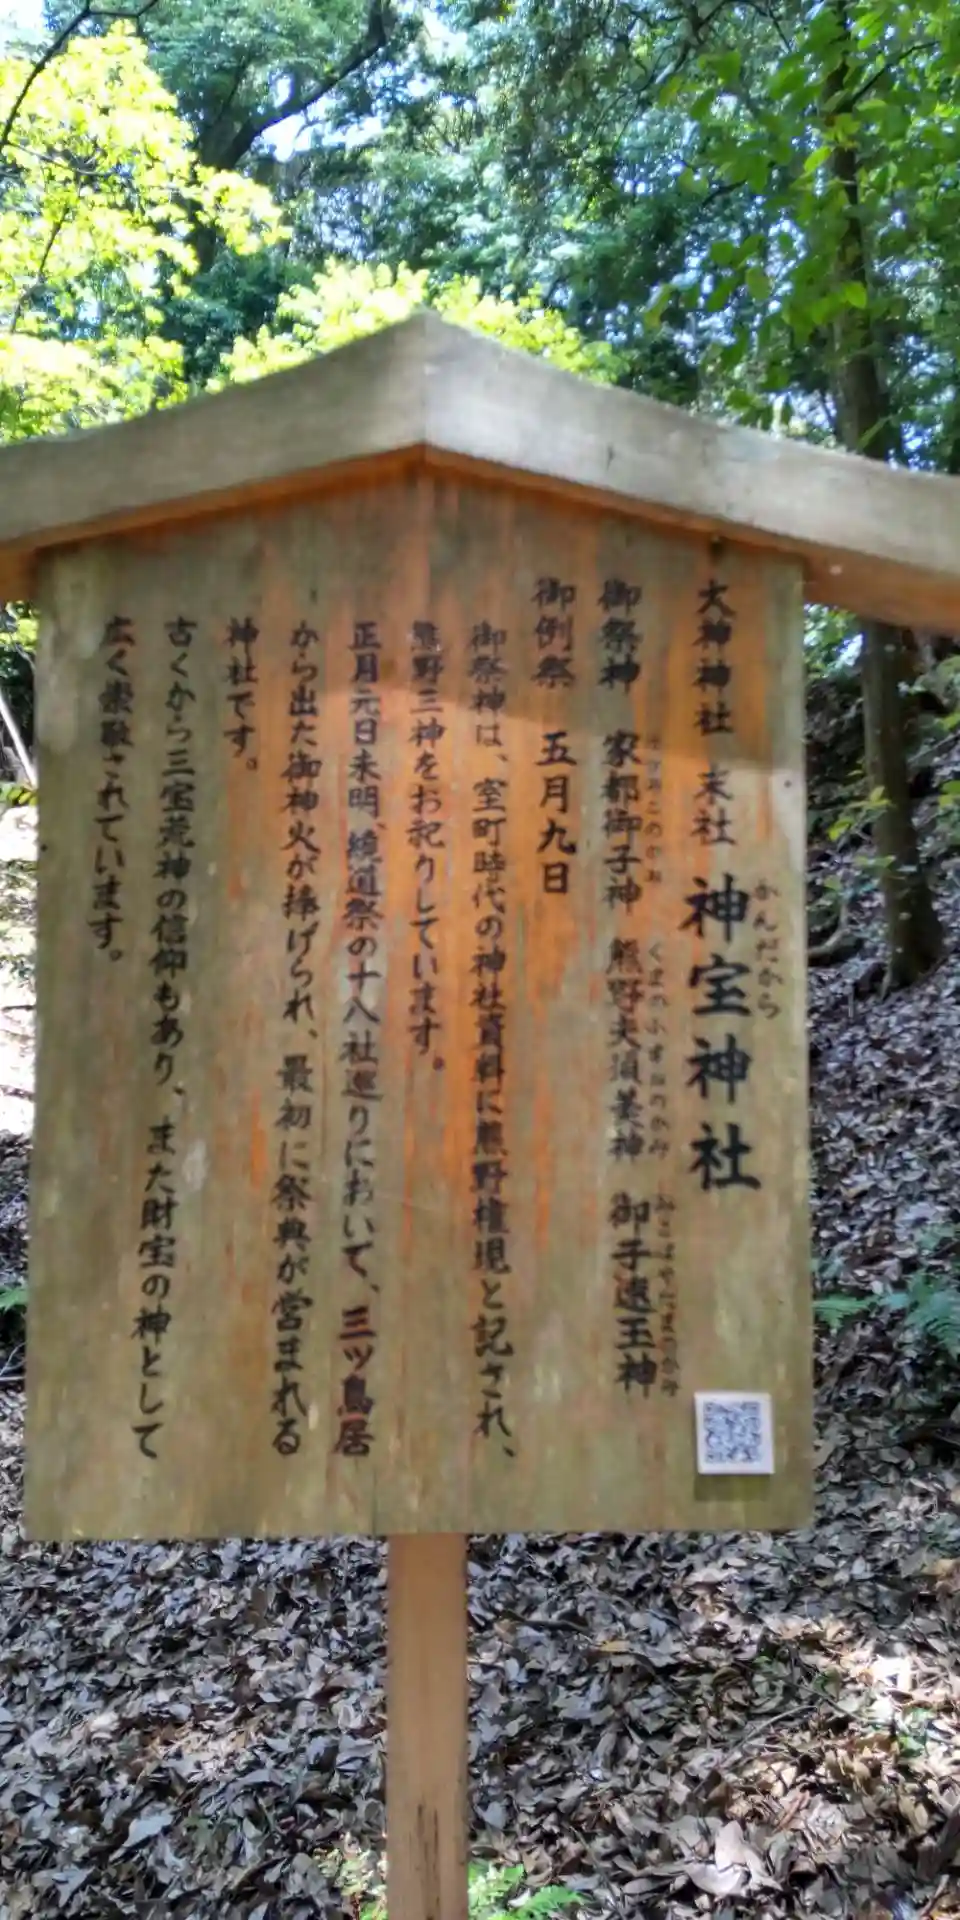 大神神社 末社 神宝神社
かんだから
御祭神 家都御子神 熊野夫須美神 御子速玉神
くまのふすみのかみ
みこはやたまのかみ
御例祭 五月九日
御祭神は、室町時代の神社資料に熊野権現と記され、
熊野三神をお祀りしています。
正月元日未明、繞道祭の十八社巡りにおいて、三ツ鳥居
から出た御神火が捧げられ、最初に祭典が営まれる
神社です。
古くから三宝荒神の信仰もあり、また財宝の神として
広く崇敬されています。